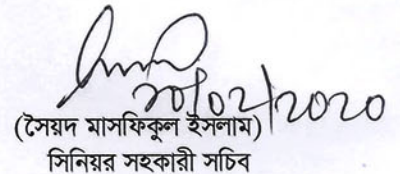 ২০/০২/২০২০
(সৈয়দ মাসফিকুল ইসলাম)
সিনিয়র সহকারী সচিব